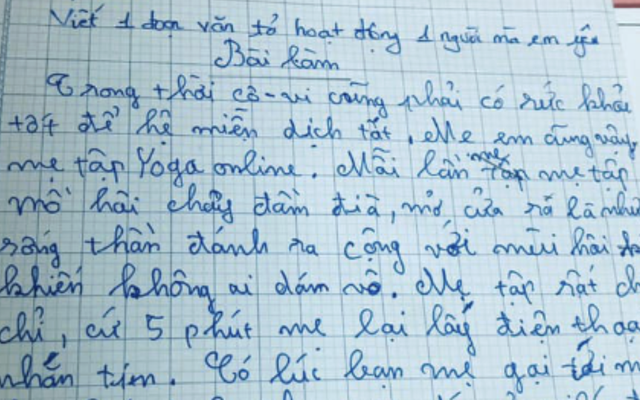 Viết 1 đoạn văn tả hoạt động 1 người mà em yêu
Bài làm
Trong thời cô-vi cũng phải có sức khỏe
tốt để hệ miễn dịch tốt. Mẹ em cũng vậy,
mẹ tập Yoga online. Mỗi lần mẹ tập
mồ hôi chảy đầm đìa, mở cửa ra là như
sóng thần đánh ra cộng với mùi hôi
khiến không ai dám vô. Mẹ tập rất
chỉ, cứ 5 phút mẹ lại lấy điện thoại
nhắn tin. Có lúc bạn mẹ gọi tới